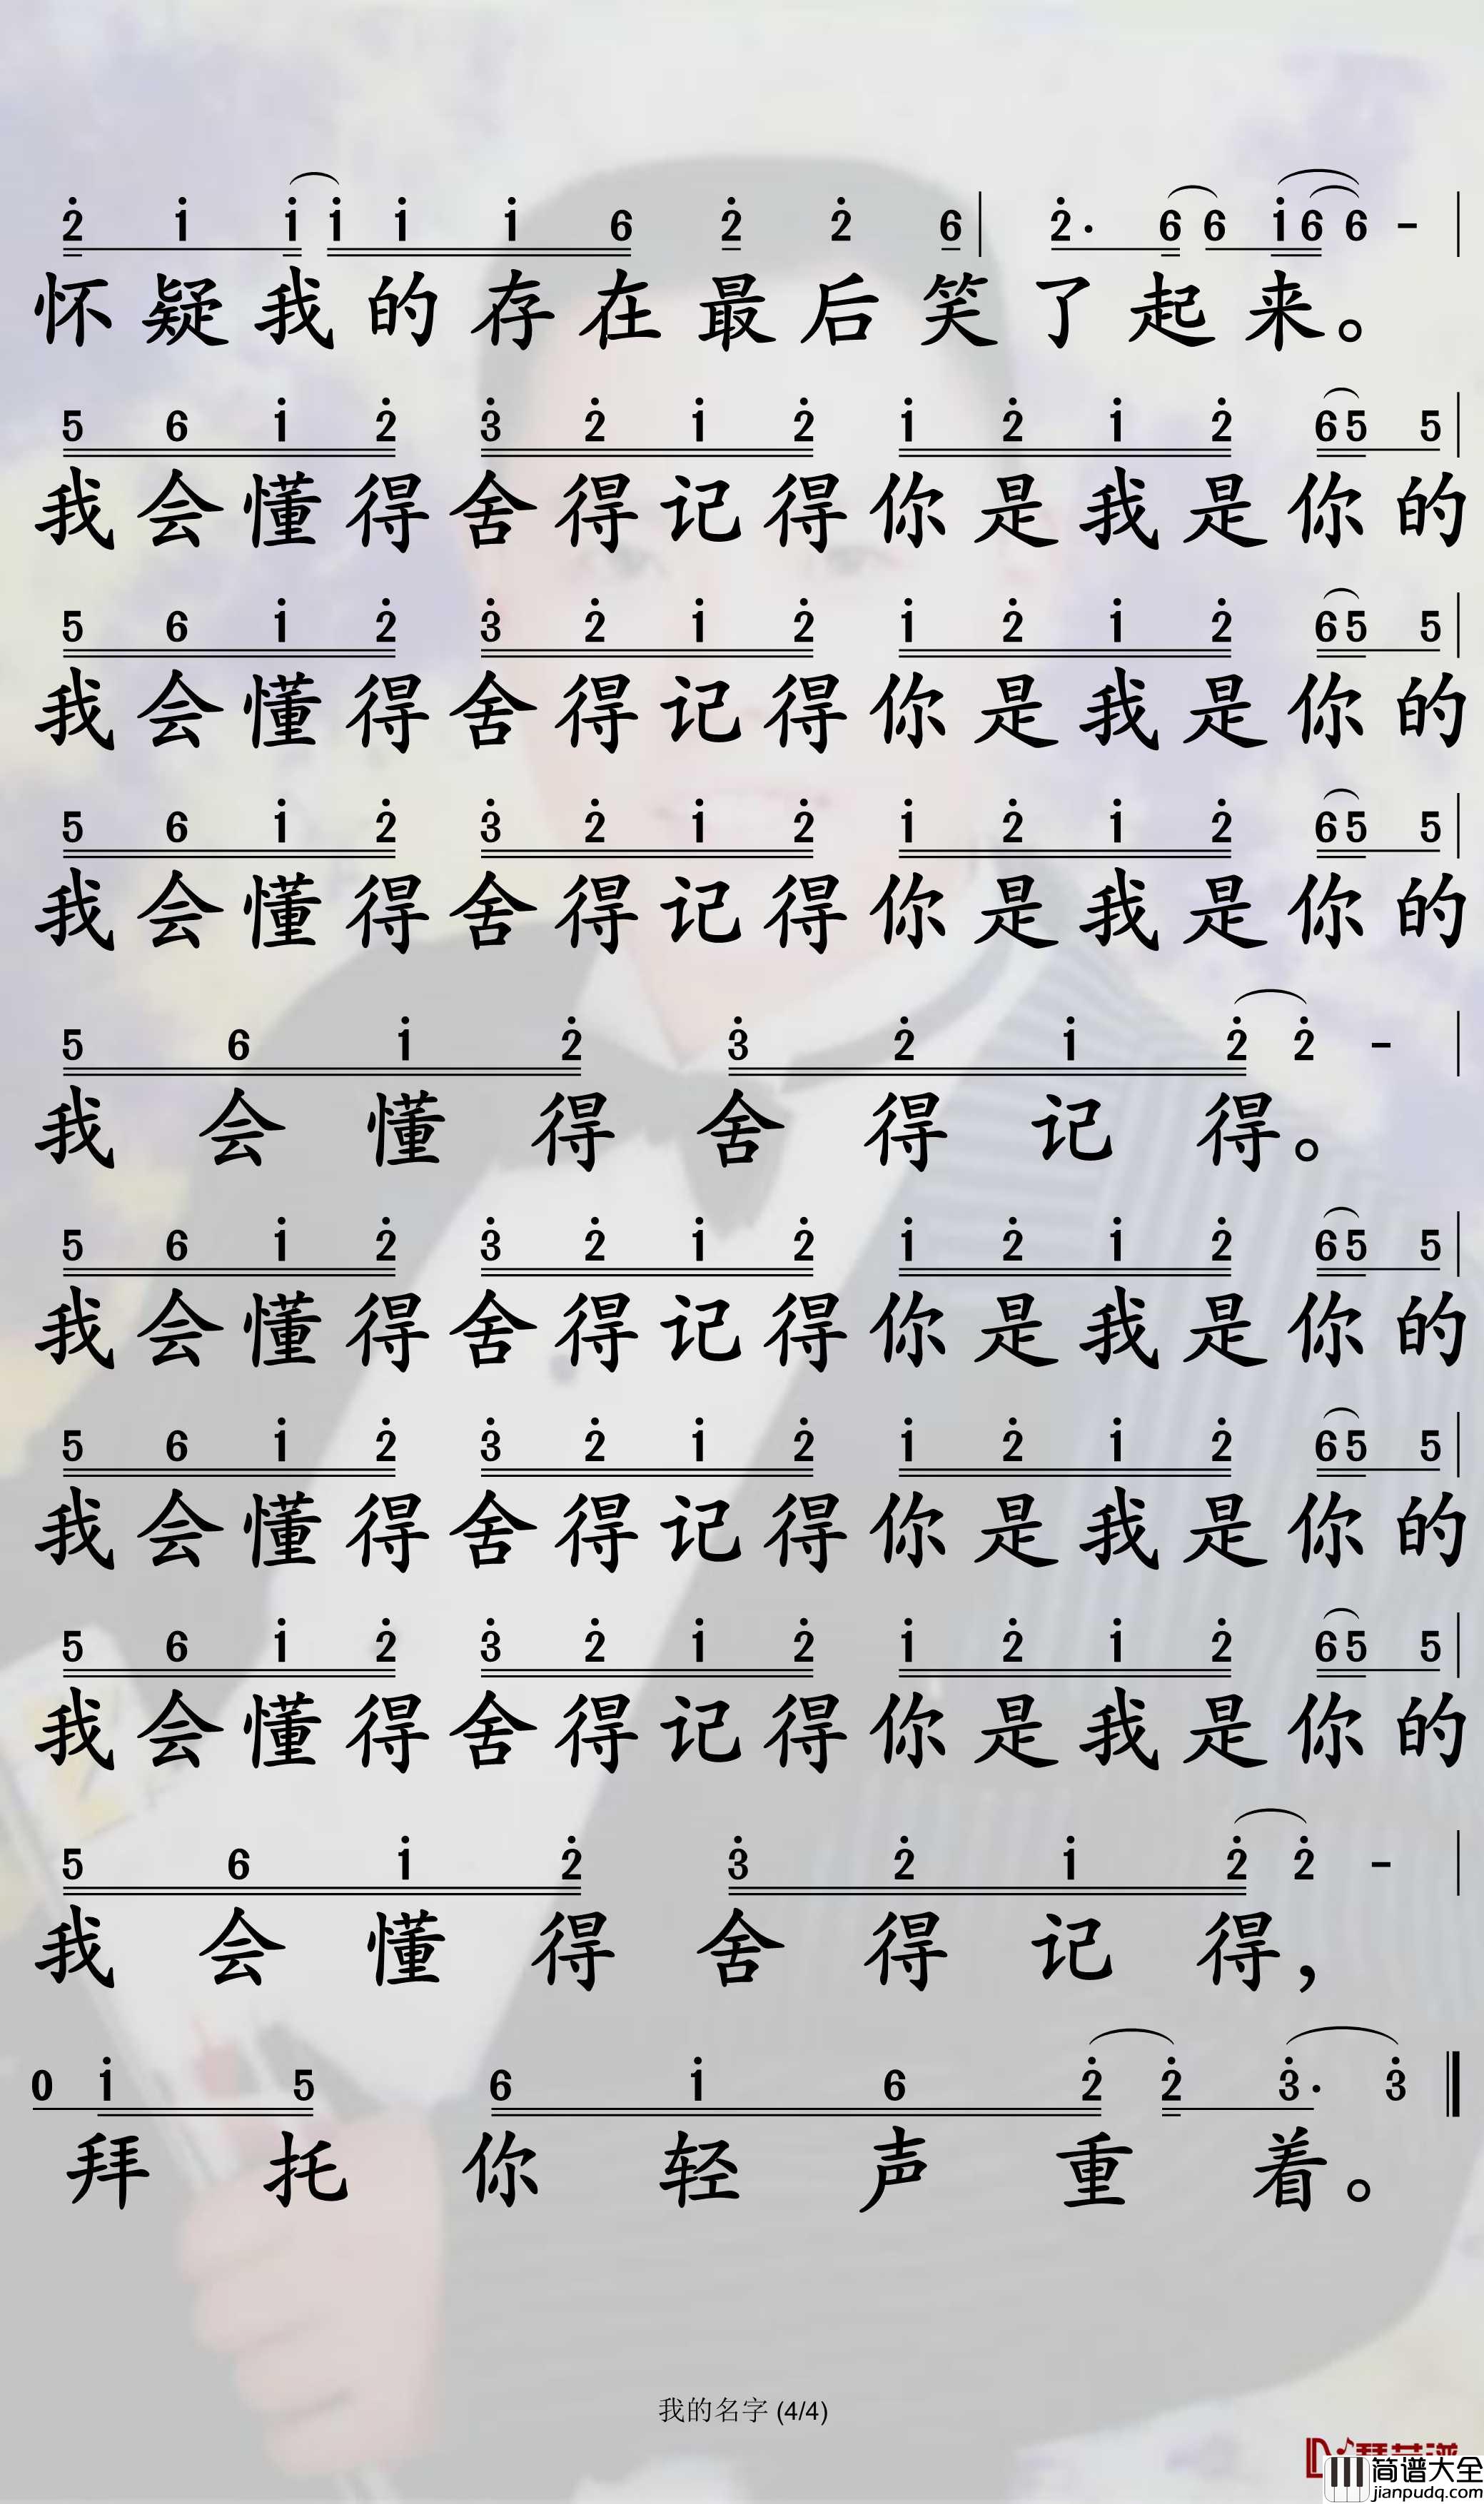 2 1 1 1 1 1 6 2 2 6 | 2· 6 6 1 6 6 - |
怀疑我的存在最后笑了起来。
5 6 1 2 3 2 1 2 1 2 1 2 6 5 5 |
我会懂得舍得记得你是我是你的
5 6 1 2 3 2 1 2 1 2 1 2 6 5 5 |
我会懂得舍得记得你是我是你的
5 6 1 2 3 2 1 2 1 2 1 2 6 5 5 |
我会懂得舍得记得你是我是你的
5 6 1 2 3 2 1 2 2 - |
我会懂得舍得记得。
5 6 1 2 3 2 1 2 1 2 1 2 6 5 5 |
我会懂得舍得记得你是我是你的
5 6 1 2 3 2 1 2 1 2 1 2 6 5 5 |
我会懂得舍得记得你是我是你的
5 6 1 2 3 2 1 2 1 2 1 2 6 5 5 |
我会懂得舍得记得你是我是你的
5 6 1 2 3 2 1 2 2 - |
我会懂得舍得记得,
0 1 5 6 1 6 2 2 3· 3
拜托你轻声重着。
我的名字 (4/4)
简谱大全
jianpudq.com